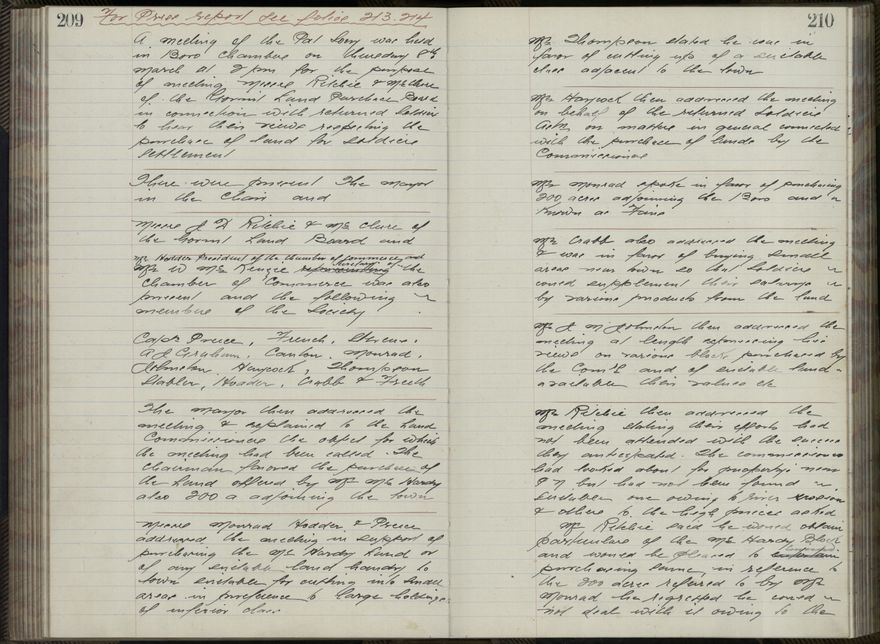 209
For Press report see folios 213.214
A meeting of the Pat Socy was held
in Boro Chambers on Thursday 8th
March at 2 pm for the purpose
of meeting Messrs Ritchie & McClure
of the Govmt Land Purchase Board
in connection with returned Soldiers
to hear their views respecting the
purchase of land for Soldiers
Settlement
There were present The Mayor
in the Chair and
Messrs J D Ritchie & McClure of
the Govmt Land Board and
Mr Hodder President of the Chamber of Commerce and
Mr W McKenzie Secretary of the
Chamber of Commerce was also
present and the following
members of the Society
Capt Preece, French, Stevens,
A J Graham, Canton, Monrad,
Johnston, Haycock, Thompson
Stabler, Hodder, Crabb & Freeth
The Mayor then addressed the
meeting & explained to the Land
Commissioners the object for which
the meeting had been called. The
Chairman favored the purchase of
the Land offered by Mr McHardy
also 200 a adjoining the town
Messrs Monrad Hodder & Preece
addressed the meeting in support of
purchasing the McHardy Land or
of any suitable land handy to
town suitable for cutting into small
areas in preference to large holdings
of inferior class
210
Mr Thompson stated he was in
favor of cutting up of a suitable
class adjacent to the town
Mr Haycock then addressed the meeting
on behalf of the returned Soldiers
Assn on matters in general connected
with the purchase of lands by the
Commissioners
Mr Monrad spoke in favor of purchasing
200 acres adjoining the Boro and
known as
Mr Crabb also addressed the meeting
& was in favor of buying small
areas near town so that Soldiers
could supplement their earnings
by various products from the land
Mr J M Johnston then addressed the
meeting at length expressing his
views on various blocks purchased by
the Govmt and of suitable land
available their values etc
Mr Ritchie then addressed the
meeting stating their efforts had
not been attended with the success
they anticipated. The commissioners
had looked about for property near
P N but had not been found
suitable one owing to river erosion
& others to the high prices asked
Mr Ritchie said he would obtain
particulars of the McHardy Block
and would be pleased to
purchasing same, in reference to
the 200 acres refered to by Mr
Monrad he regretted he could
not deal with it owing to the